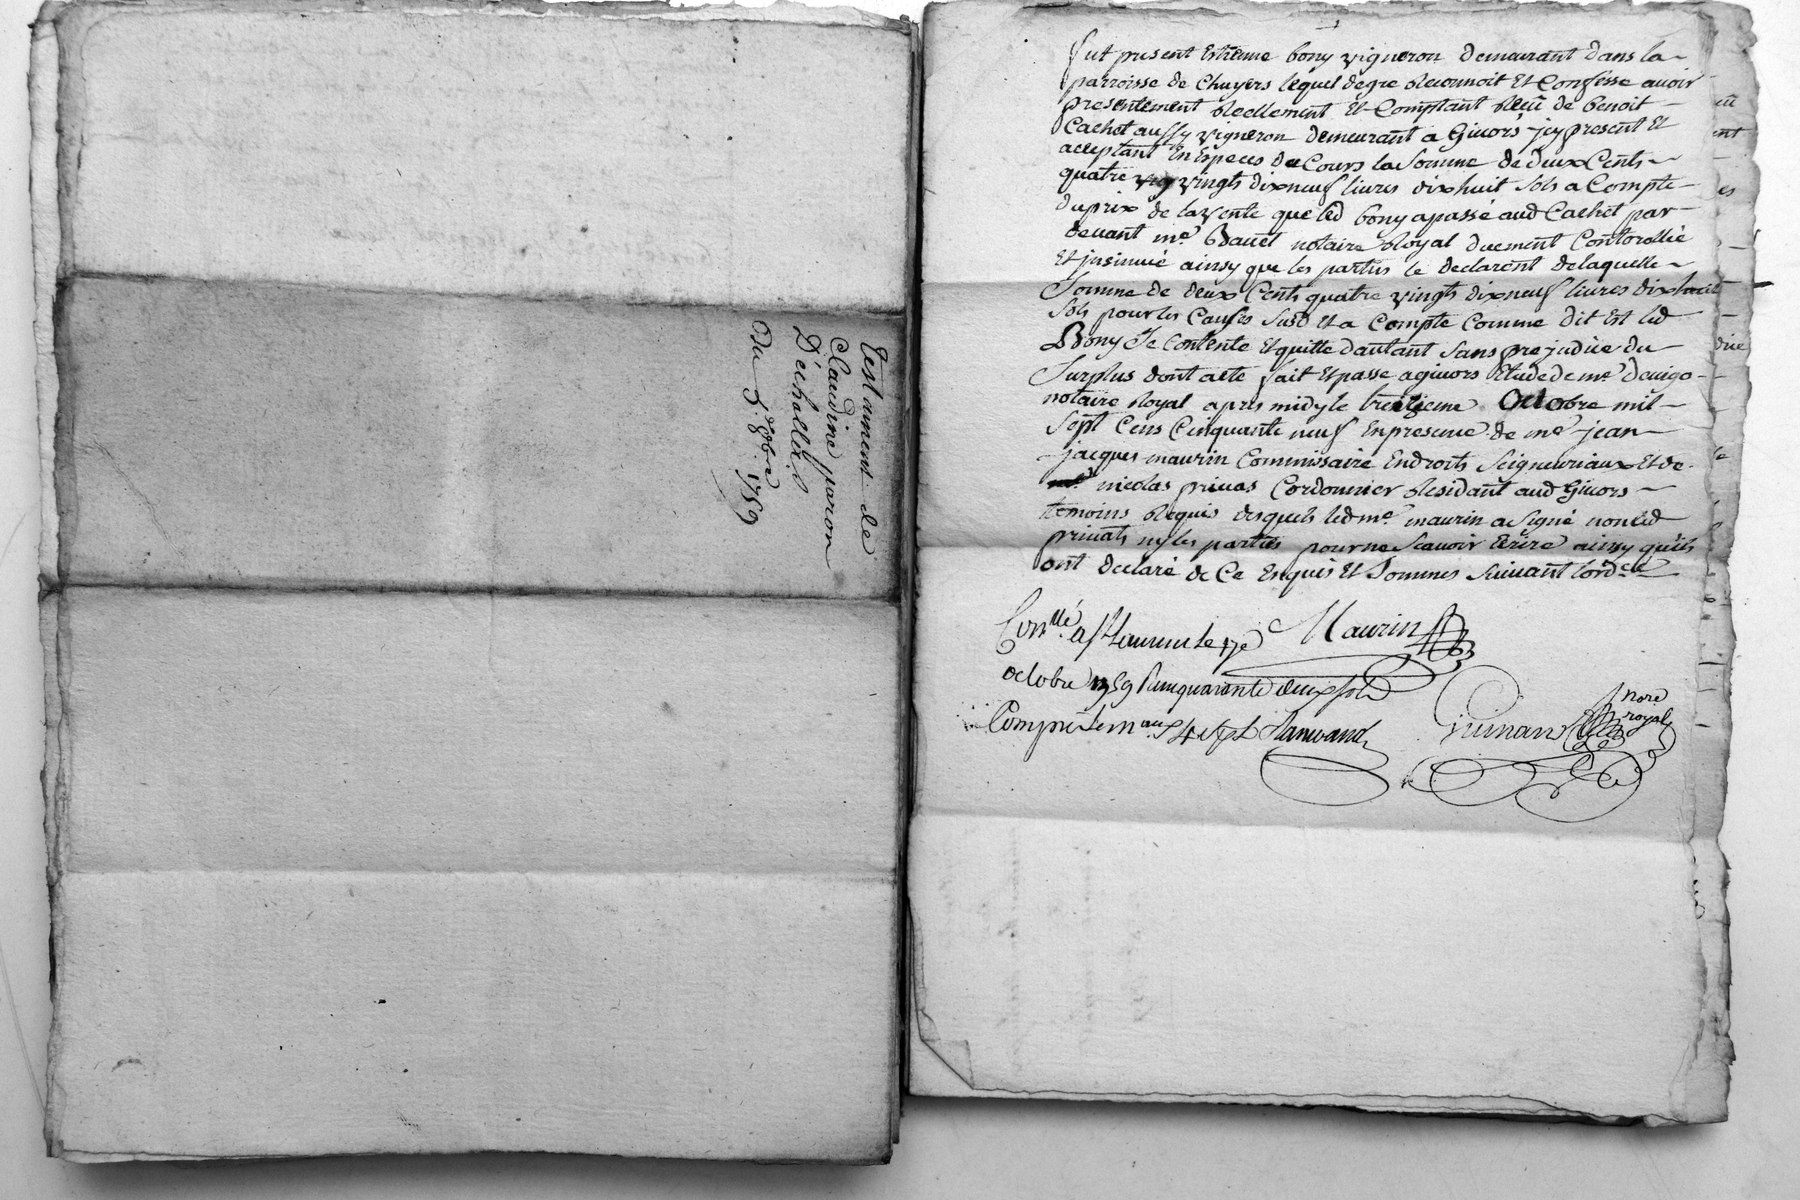 Testament de
Claudine paron
D'echallas
Du 9bre 1759
fut present Estienne bony vigneron demeurant dans la
parroisse de Chuyers lequel degre Reconnoit Et Confesse avoir
presentement Reellement Et Comptant Receû de benoit
Cachet aussy vigneron demeurant a Givors jcy present Et
acceptant En Especes de Cours la Somme de deux Cents
quatre vingts dixneuf livres dixhuit sols a Compte
du prix de la vente que led bony a passé aud Cachet par
devant me Bavet notaire Royal duement Controllée
Et jnsinuée ainsy que les parties le declarent delaquelle
Somme de deux Cents quatre vingts dixneuf livres dixhuit
sols pour les Causes susd Et a Compte Comme dit Est led
Bony Se Contente Et quitte dautant sans prejudice du
Surplus dont acte fait Et passe a givors Etude de me devigo
notaire Royal apres midy le treizieme Octobre mil
Sept Cens Cinquante neuf En presence de me jean
jacques maurin Commissaire En droits Seigneuriaux Et de
nicolas privas Cordonnier Residant aud Givors
temoins Requis desquels led me maurin a signé non led
privats ny les parties pour ne Scavoir Ecrire ainsy quils
ont declaré de Ce Enquis Et Sommes suivant lord.ce
Con.llé a le 17e Maurin
octobre 1759 quarante deux sols
Compris les 4 s. pl.
nore
royal